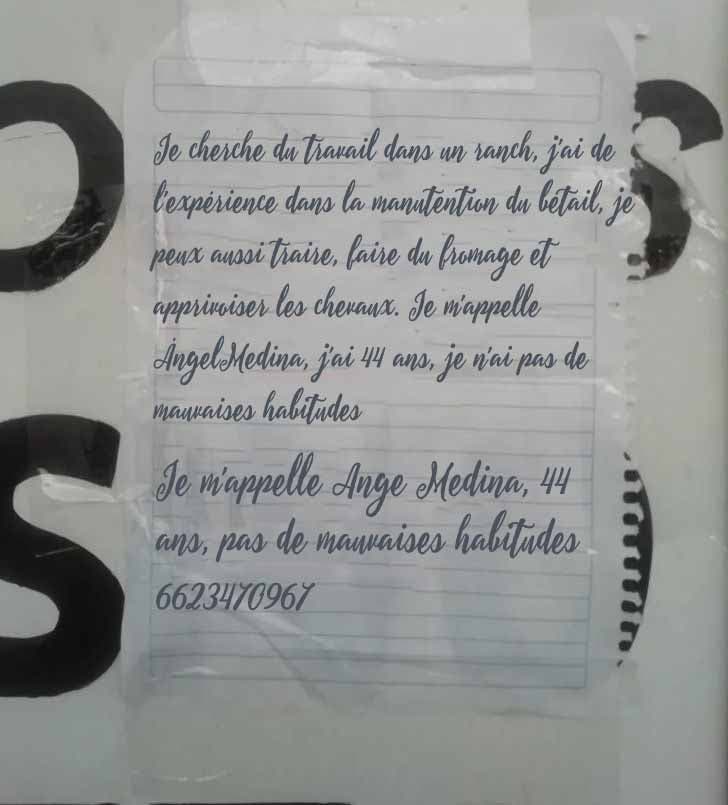 Je cherche du travail dans un ranch, j'ai de
l'expérience dans la manutention du bétail, je
peux aussi traire, faire du fromage et
apprivoiser les chevaux. Je m'appelle
ÁngelMedina, j'ai 44 ans, je n'ai pas de
mauvaises habitudes
Je m'appelle Ange Medina, 44
ans, pas de mauvaises habitudes
6623470967